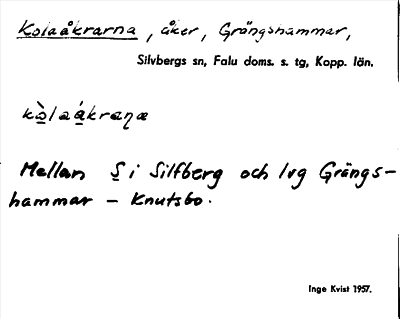 Kolaåkrarna, åker, Grängshammar,
Silvbergs sn, Falu doms. s. tg, Kopp. län.
kò̱laá̱kraꞃæ
Mellan S̱ i Silfberg och lvg Grängs-
hammar - Knutsbo.
Inge Kvist 1957.